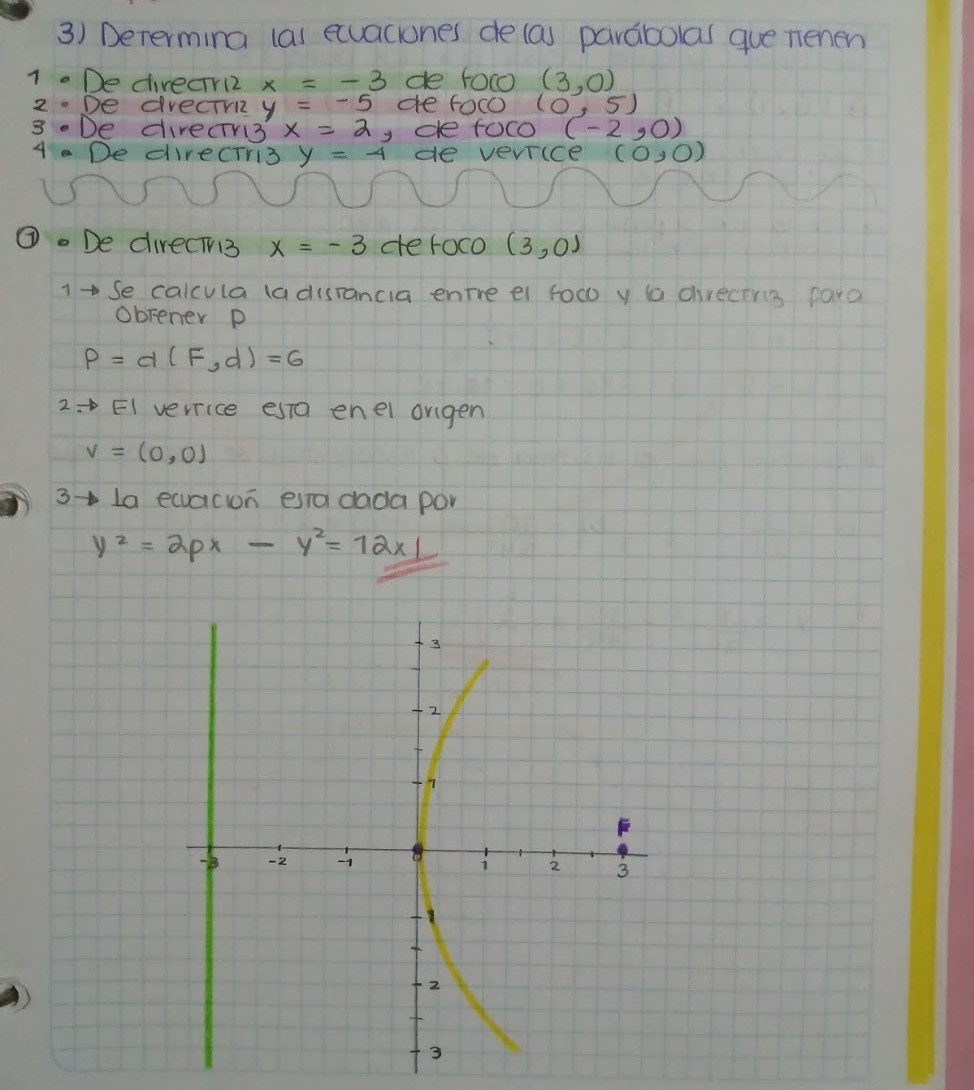 3) Determina las ecuaciones de las parábolas que tienen
1 • De directriz x = -3 de foco (3,0)
2 • De directriz y = -5 de foco (0, 5)
3 • De directriz x = 2, de foco (-2,0)
4 • De directriz y = -4 de vertice (0,0)
① • De directriz x = -3 de foco (3,0)
1 → Se calcula la distancia entre el foco y la directriz para
Obtener p
P = d (F,d) = 6
2 → El vertice esta en el origen
v = (0,0)
3 → La ecuación esta dada por
y² = 2px — y² = 12x
3
2
1
F
-3 -2 -1 0 1 2 3
1
2
3